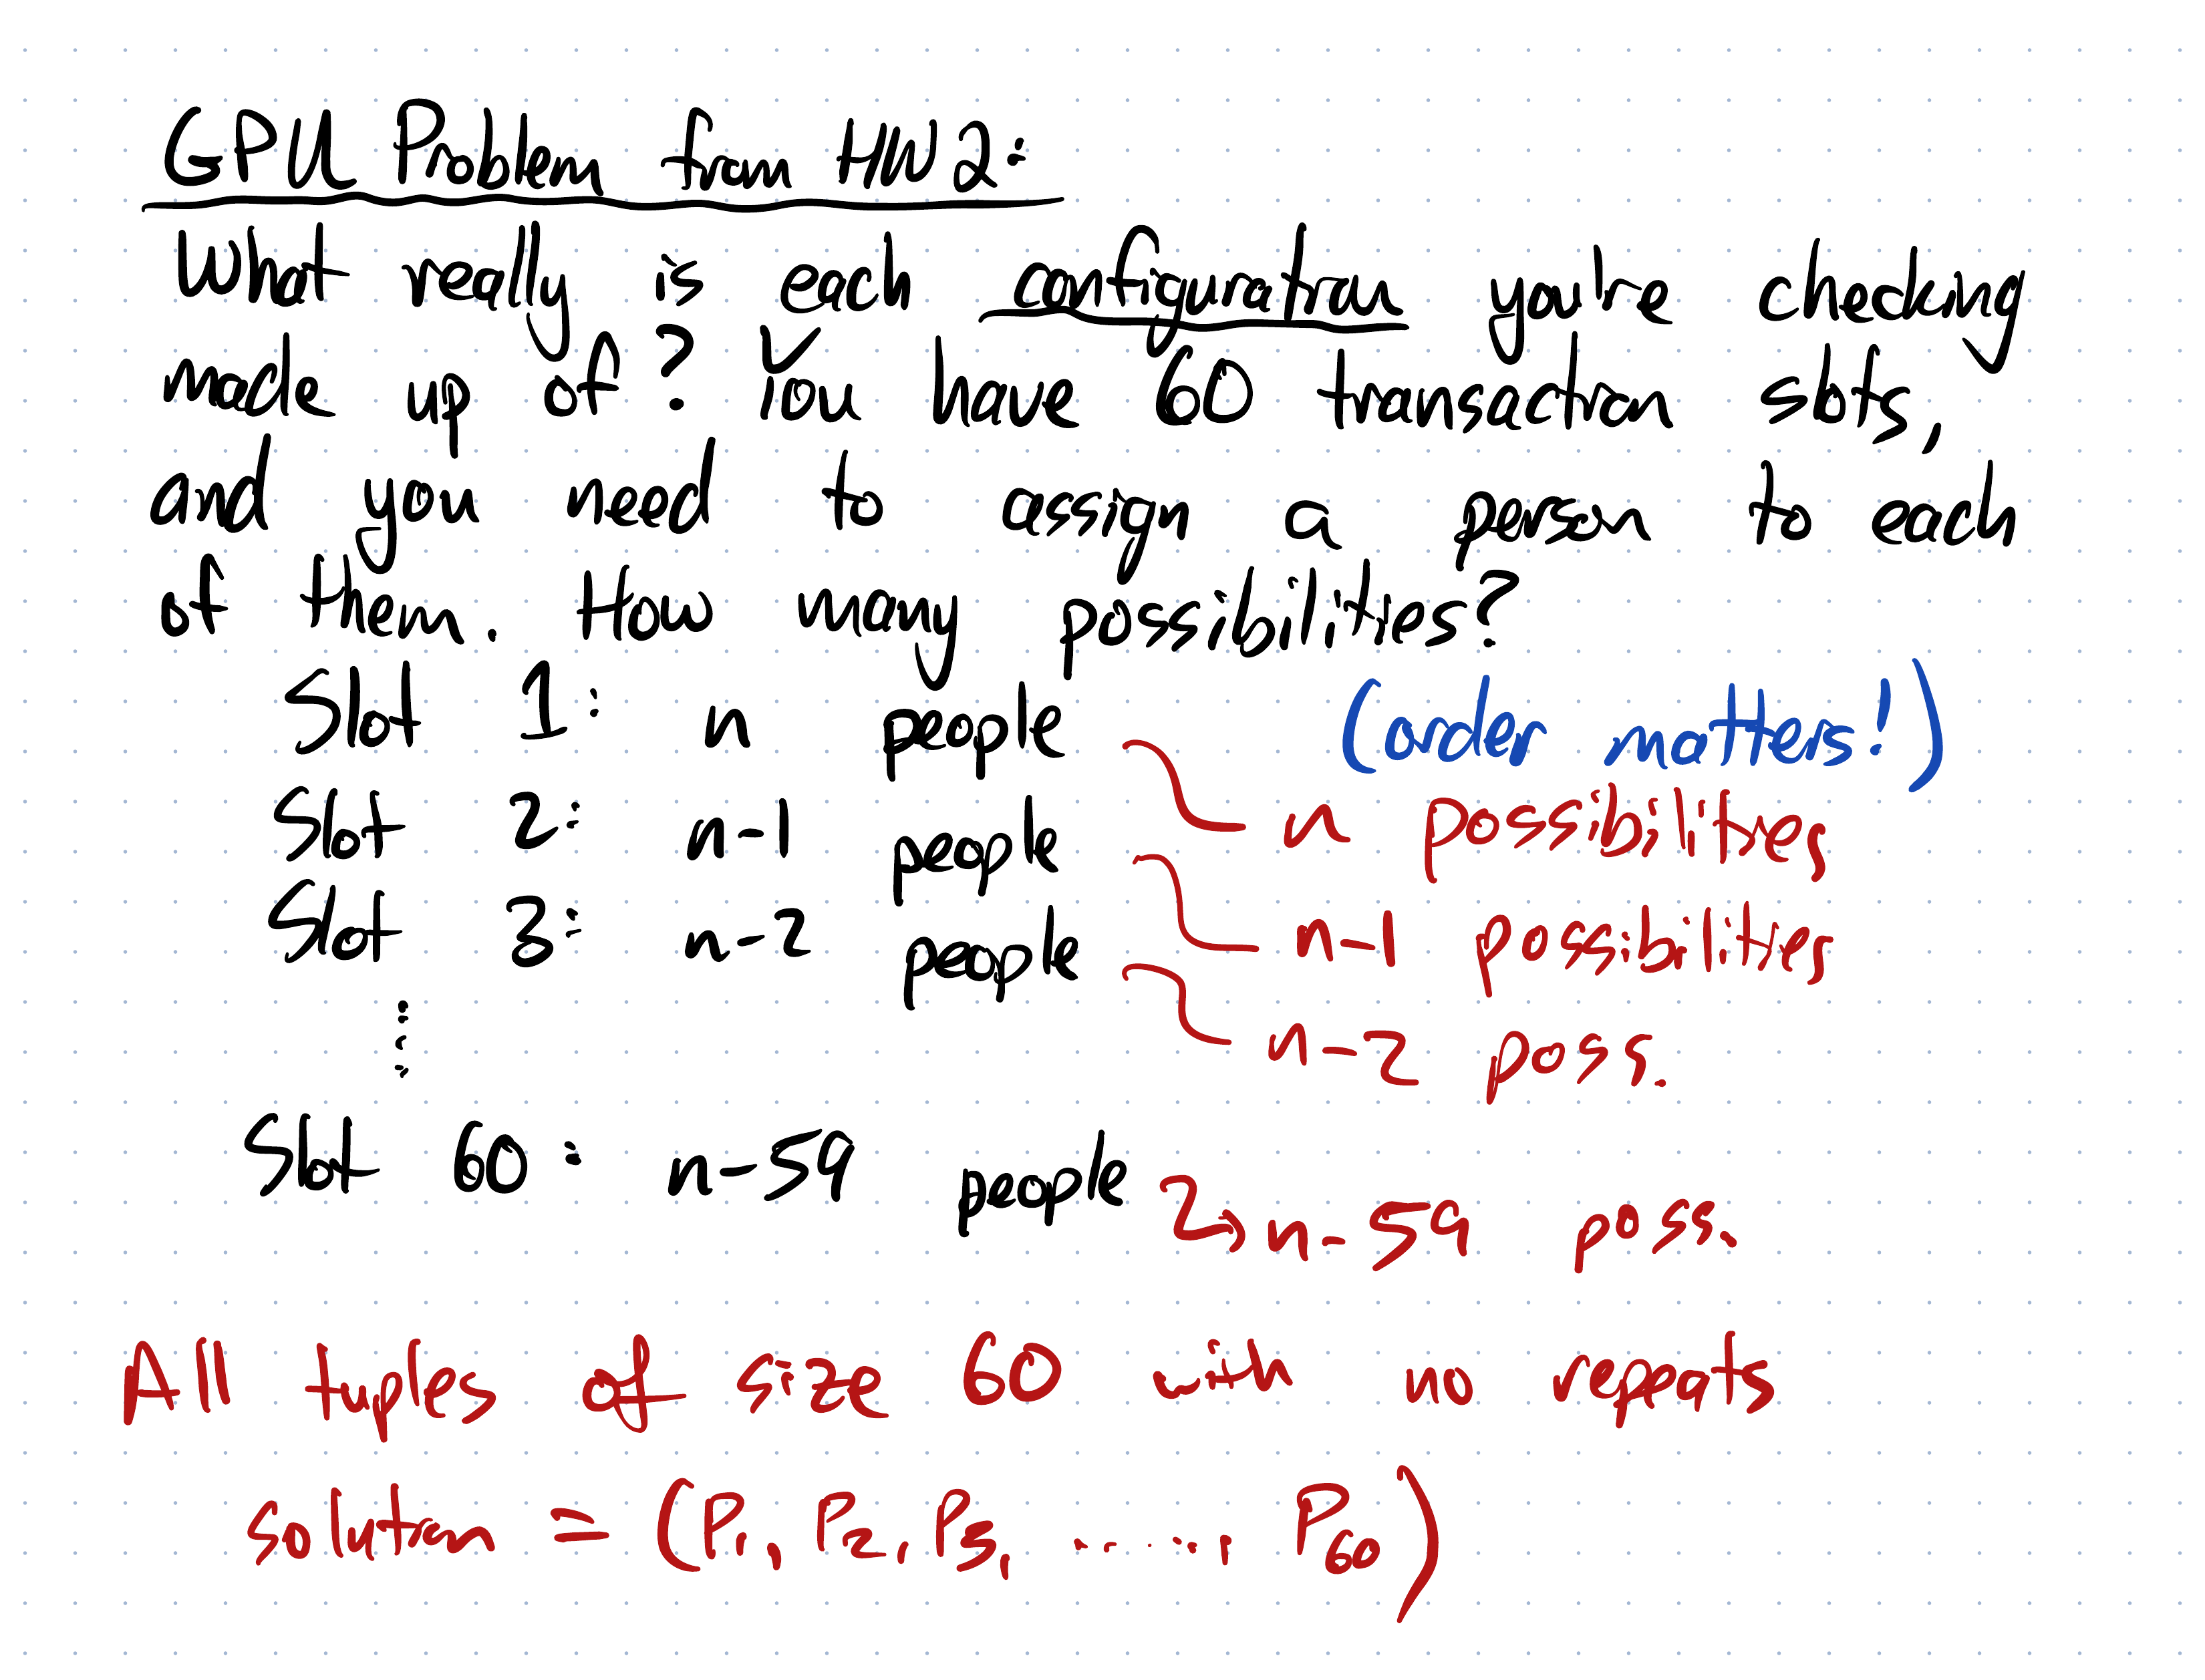 GPU Problem from HW2:
What really is each configuration you're checking
made up of? You have 60 transaction slots,
and you need to assign a person to each
of them. How many possibilities?
Slot 1: n people (order matters!)
n possibilities
Slot 2: n-1 people
n-1 possibilities
Slot 3: n-2 people
n-2 poss.
Slot 60: n-59 people
n-59 poss.
All tuples of size 60 with no repeats
solution = (P1, P2, P3, ....., P60)